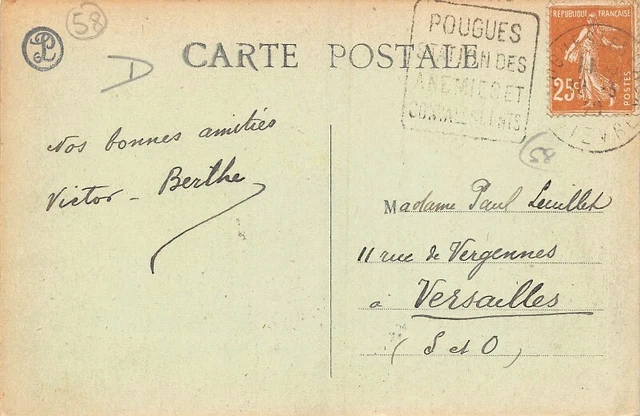 58
CARTE POSTALE
POUGUES
STATION DES
ANEMIES ET
CONVALESCENTS
REPUBLIQUE FRANÇAISE
25c
POSTES
NIEVRE
58
D
Nos bonnes amitiés
Victor - Berthe
Madame Paul Leuillet
11 rue de Vergennes
à Versailles
(S et O)